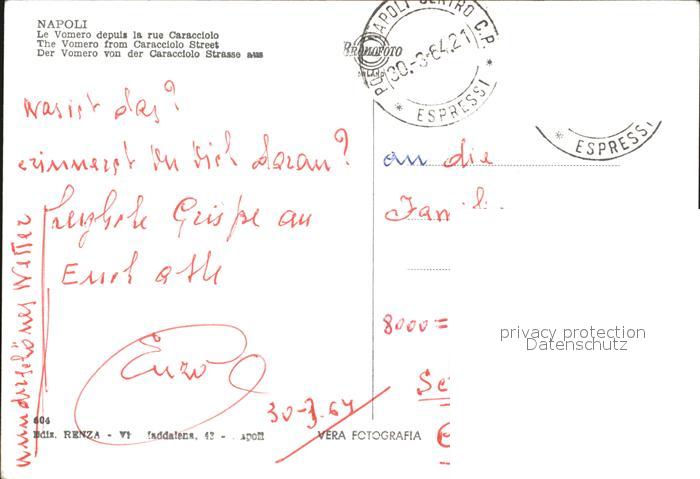 NAPOLI
Le Vomero depuis la rue Caracciolo
The Vomero from Caracciolo Street
Der Vomero von der Caracciolo Strasse aus
NAPOLI CENTRO C.P.
30.-3-64.21
ESPRESSI
ESPRESSI
was ist das?
erinnerst Du Dich daran?
herzliche Grüsse an
Euch alle
Enzo
30-3.64
wunderschönes Wetter
an die
Fam
8000 =
privacy protection
Datenschutz
604
Ediz. RENZA - Vi addalena, 42 - apoli
VERA FOTOGRAFIA